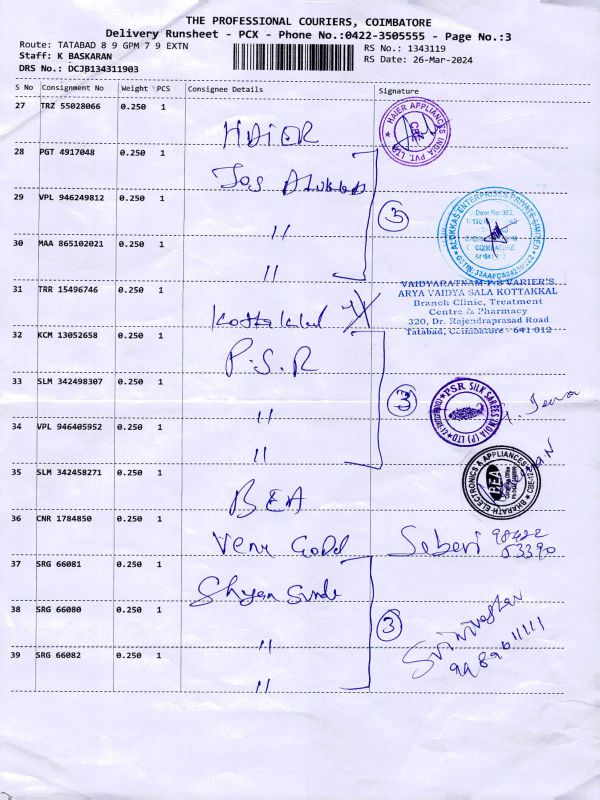 THE PROFESSIONAL COURIERS, COIMBATORE
Delivery Runsheet - PCX - Phone No.:0422-3505555 - Page No.:3
Route: TATABAD 8 9 GPM 7 9 EXTN
RS No.: 1343119
Staff: K BASKARAN
RS Date: 26-Mar-2024
DRS No.: DCJB134311903
S No Consignment No Weight PCS Consignee Details Signature
27 TRZ 55028066 0.250 1
HAIER
HAIER APPLIANCES INDIA PVT. LTD
CBN
28 PGT 4917048 0.250 1
Jos Alukkas
29 VPL 946249812 0.250 1
"
3
ALUKKAS ENTERPRISES PRIVATE LIMITED
Door No: 383,
COIMBATORE
30 MAA 865102021 0.250 1
"
31 TRR 15496746 0.250 1
Kottakkal
VAIDYARATNAM P.S VARIER'S
ARYA VAIDYA SALA KOTTAKKAL
Branch Clinic, Treatment
Centre & Pharmacy
320, Dr. Rajendraprasad Road
Tatabad, Coimbatore - 641 012
32 KCM 13052658 0.250 1
P.S.R
33 SLM 342498307 0.250 1
"
3
PSR SILK SAREES INDIA (P) LTD
34 VPL 946405952 0.250 1
"
35 SLM 342458271 0.250 1
BEA
BHARATH ELECTRONICS & APPLIANCES
BEA
CBE-12
36 CNR 1784850 0.250 1
Venu Gopal
Saberi 98422
53390
37 SRG 66081 0.250 1
Shyam Sunde
38 SRG 66080 0.250 1
"
3
Srinivashan
9989611111
39 SRG 66082 0.250 1
"